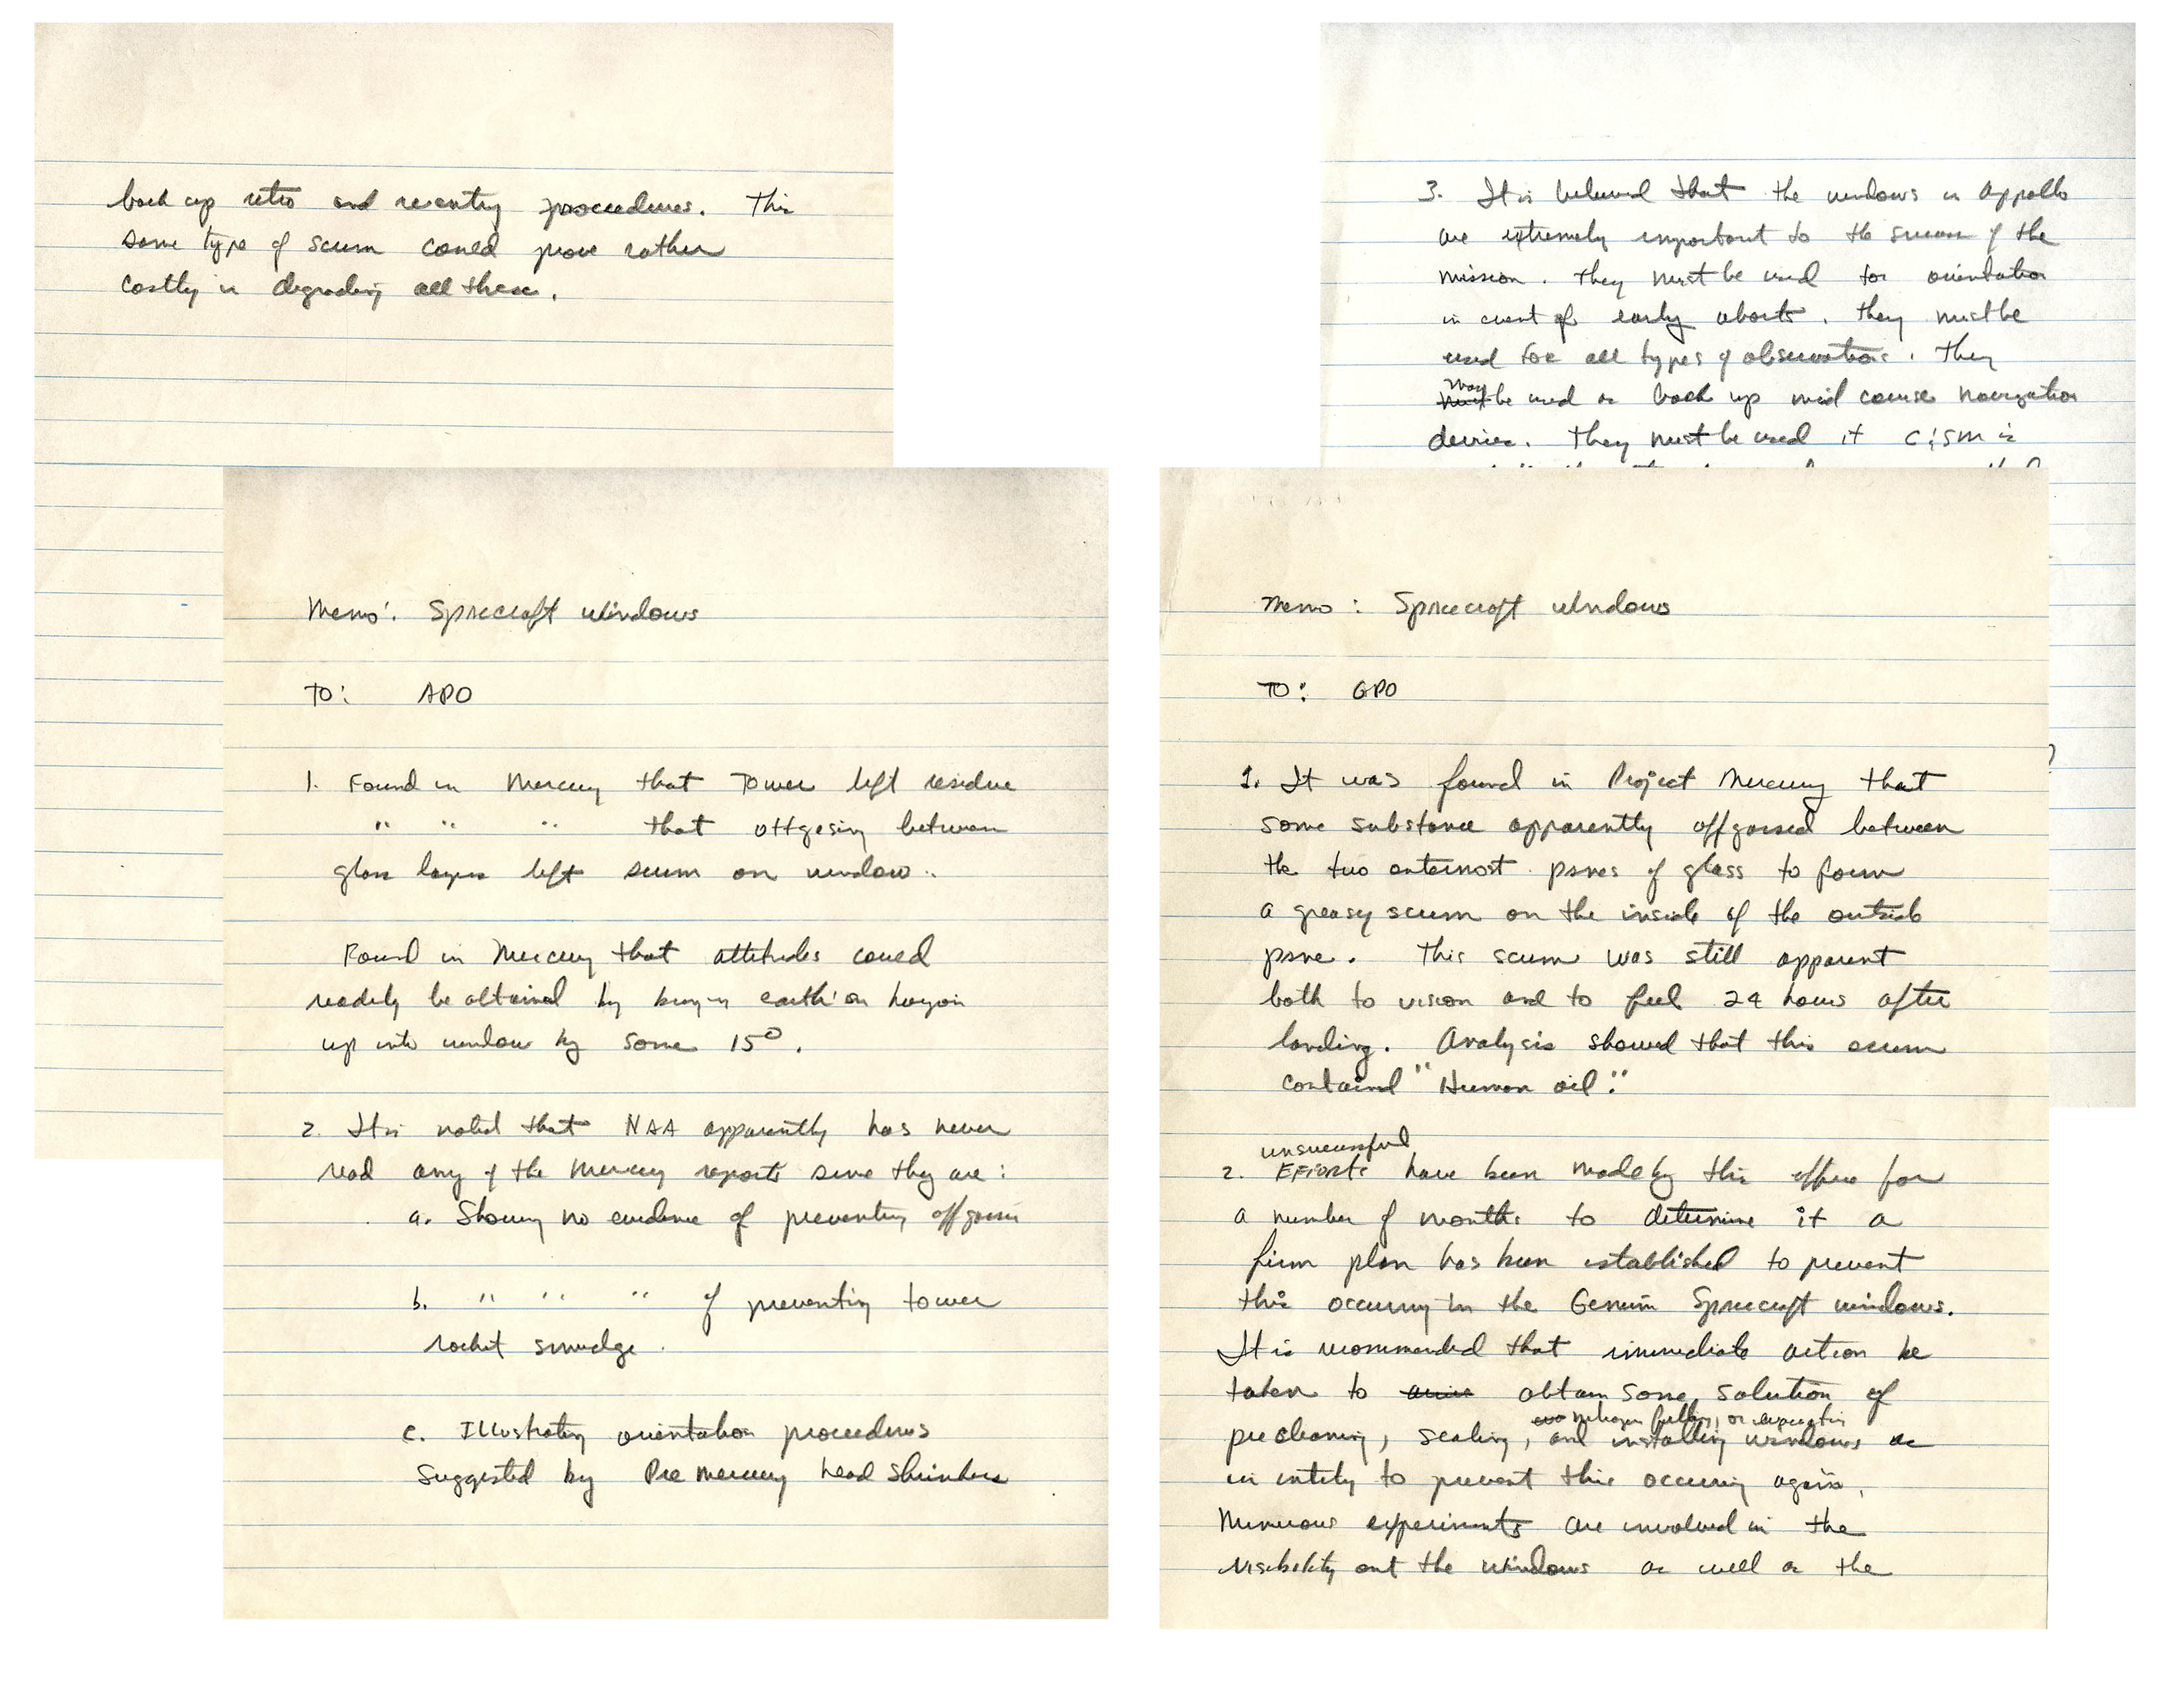 back up retro and reentry procedures. This
same type of scum could prove rather
costly in degrading all these.
3. It is believed that the windows in Appollo
are extremely important to the success of the
mission. They must be used for orientation
in event of early aborts. They must be
used for all types of observations. They
may
must be used as back up mid course navigation
device. They must be used if C&SM is
Memo: Spacecraft Windows
TO: APO
1. Found in Mercury that Tower left residue
" " " that offgasing between
glass layers left scum on window.
Found in Mercury that attitudes could
readily be obtained by earth
up into window by some 15°.
2. It is noted that NAA apparently has never
read any of the Mercury reports since they are:
a. Showing no evidence of preventing offgassin
b. " " " of preventing tower
rocket smudge.
c. Illustrating orientation procedures
suggested by Pre Mercury head shrinkers
Memo: Spacecraft Windows
TO: GPO
1. It was found in Project Mercury that
some substance apparently offgassed between
the two outermost panes of glass to form
a greasy scum on the inside of the outside
pane. This scum was still apparent
both to vision and to feel 24 hours after
landing. Analysis showed that this scum
contained "Human oil".
unsucessful
2. Efforts have been made by this office for
a number of months to determine if a
firm plan has been established to prevent
this occuring in the Gemini Spacecraft windows.
It is recommended that immediate action be
taken to obtain some solution of
nitrogen filling, or
precleaning, sealing, and installing windows
in entity to prevent this occuring again.
Numerous experiments are involved in the
visibility out the windows as well as the